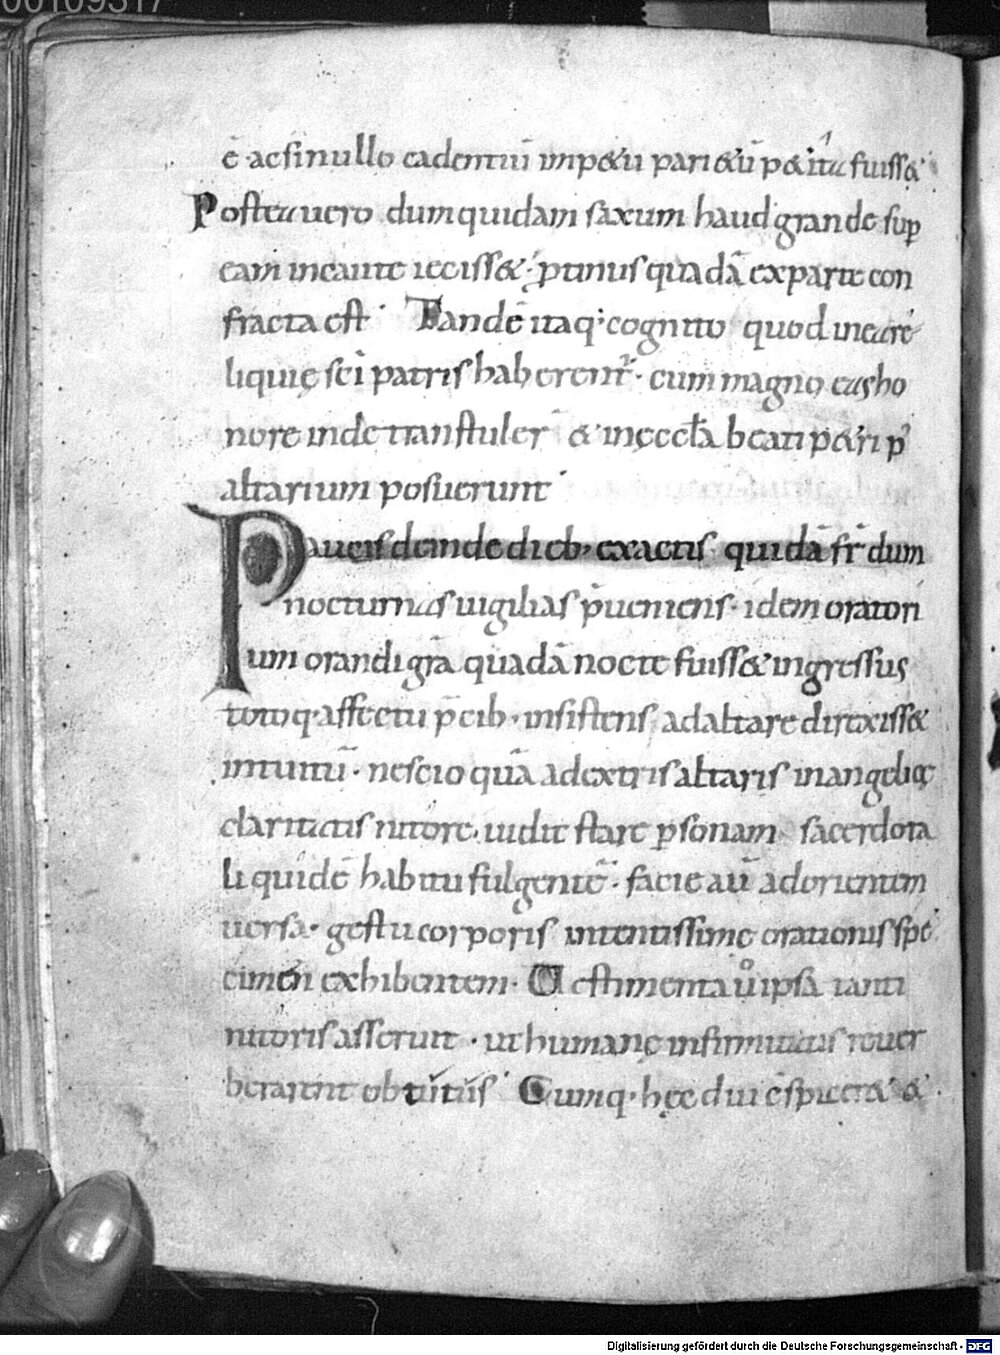 00109317
ē ac si nullo cadentiū impetu parietū petita fuisset
Postea uero dum quidam saxum haud grande sup
eam incaute iecisset ꝓtinus quadā ex parte con
fracta est Tandē itaq; cognito quod in ea re
liquię sc̄i patris haberent᷑ cum magno eas ho
nore inde transtuler̄ & in ęccl̄a beati petri p̄
altarium posuerunt
Paucis deinde dieb; exactis quidā fr̄ dum
nocturnas uigilias p̄ueniens idem oratori
um orandi gr̄a quadā nocte fuisset ingressus
totoq; affectu p̄cib; insistens ad altare direxisset
intuitū nescio quā a dextris altaris in angelicę
claritatis nitore uidit stare ꝑsonam sacerdota
li quidē habitu fulgentē facie aū ad orientem
uersa gestu corporis intentissime orationis spe
cimen exhibentem Uestimenta ůipsa tanti
nitoris asserunt ut humanę infirmitatis reuer
berarent obtūtus Cumq; hęc diu c̄spiceret &
Digitalisierung gefördert durch die Deutsche Forschungsgemeinschaft - DFG